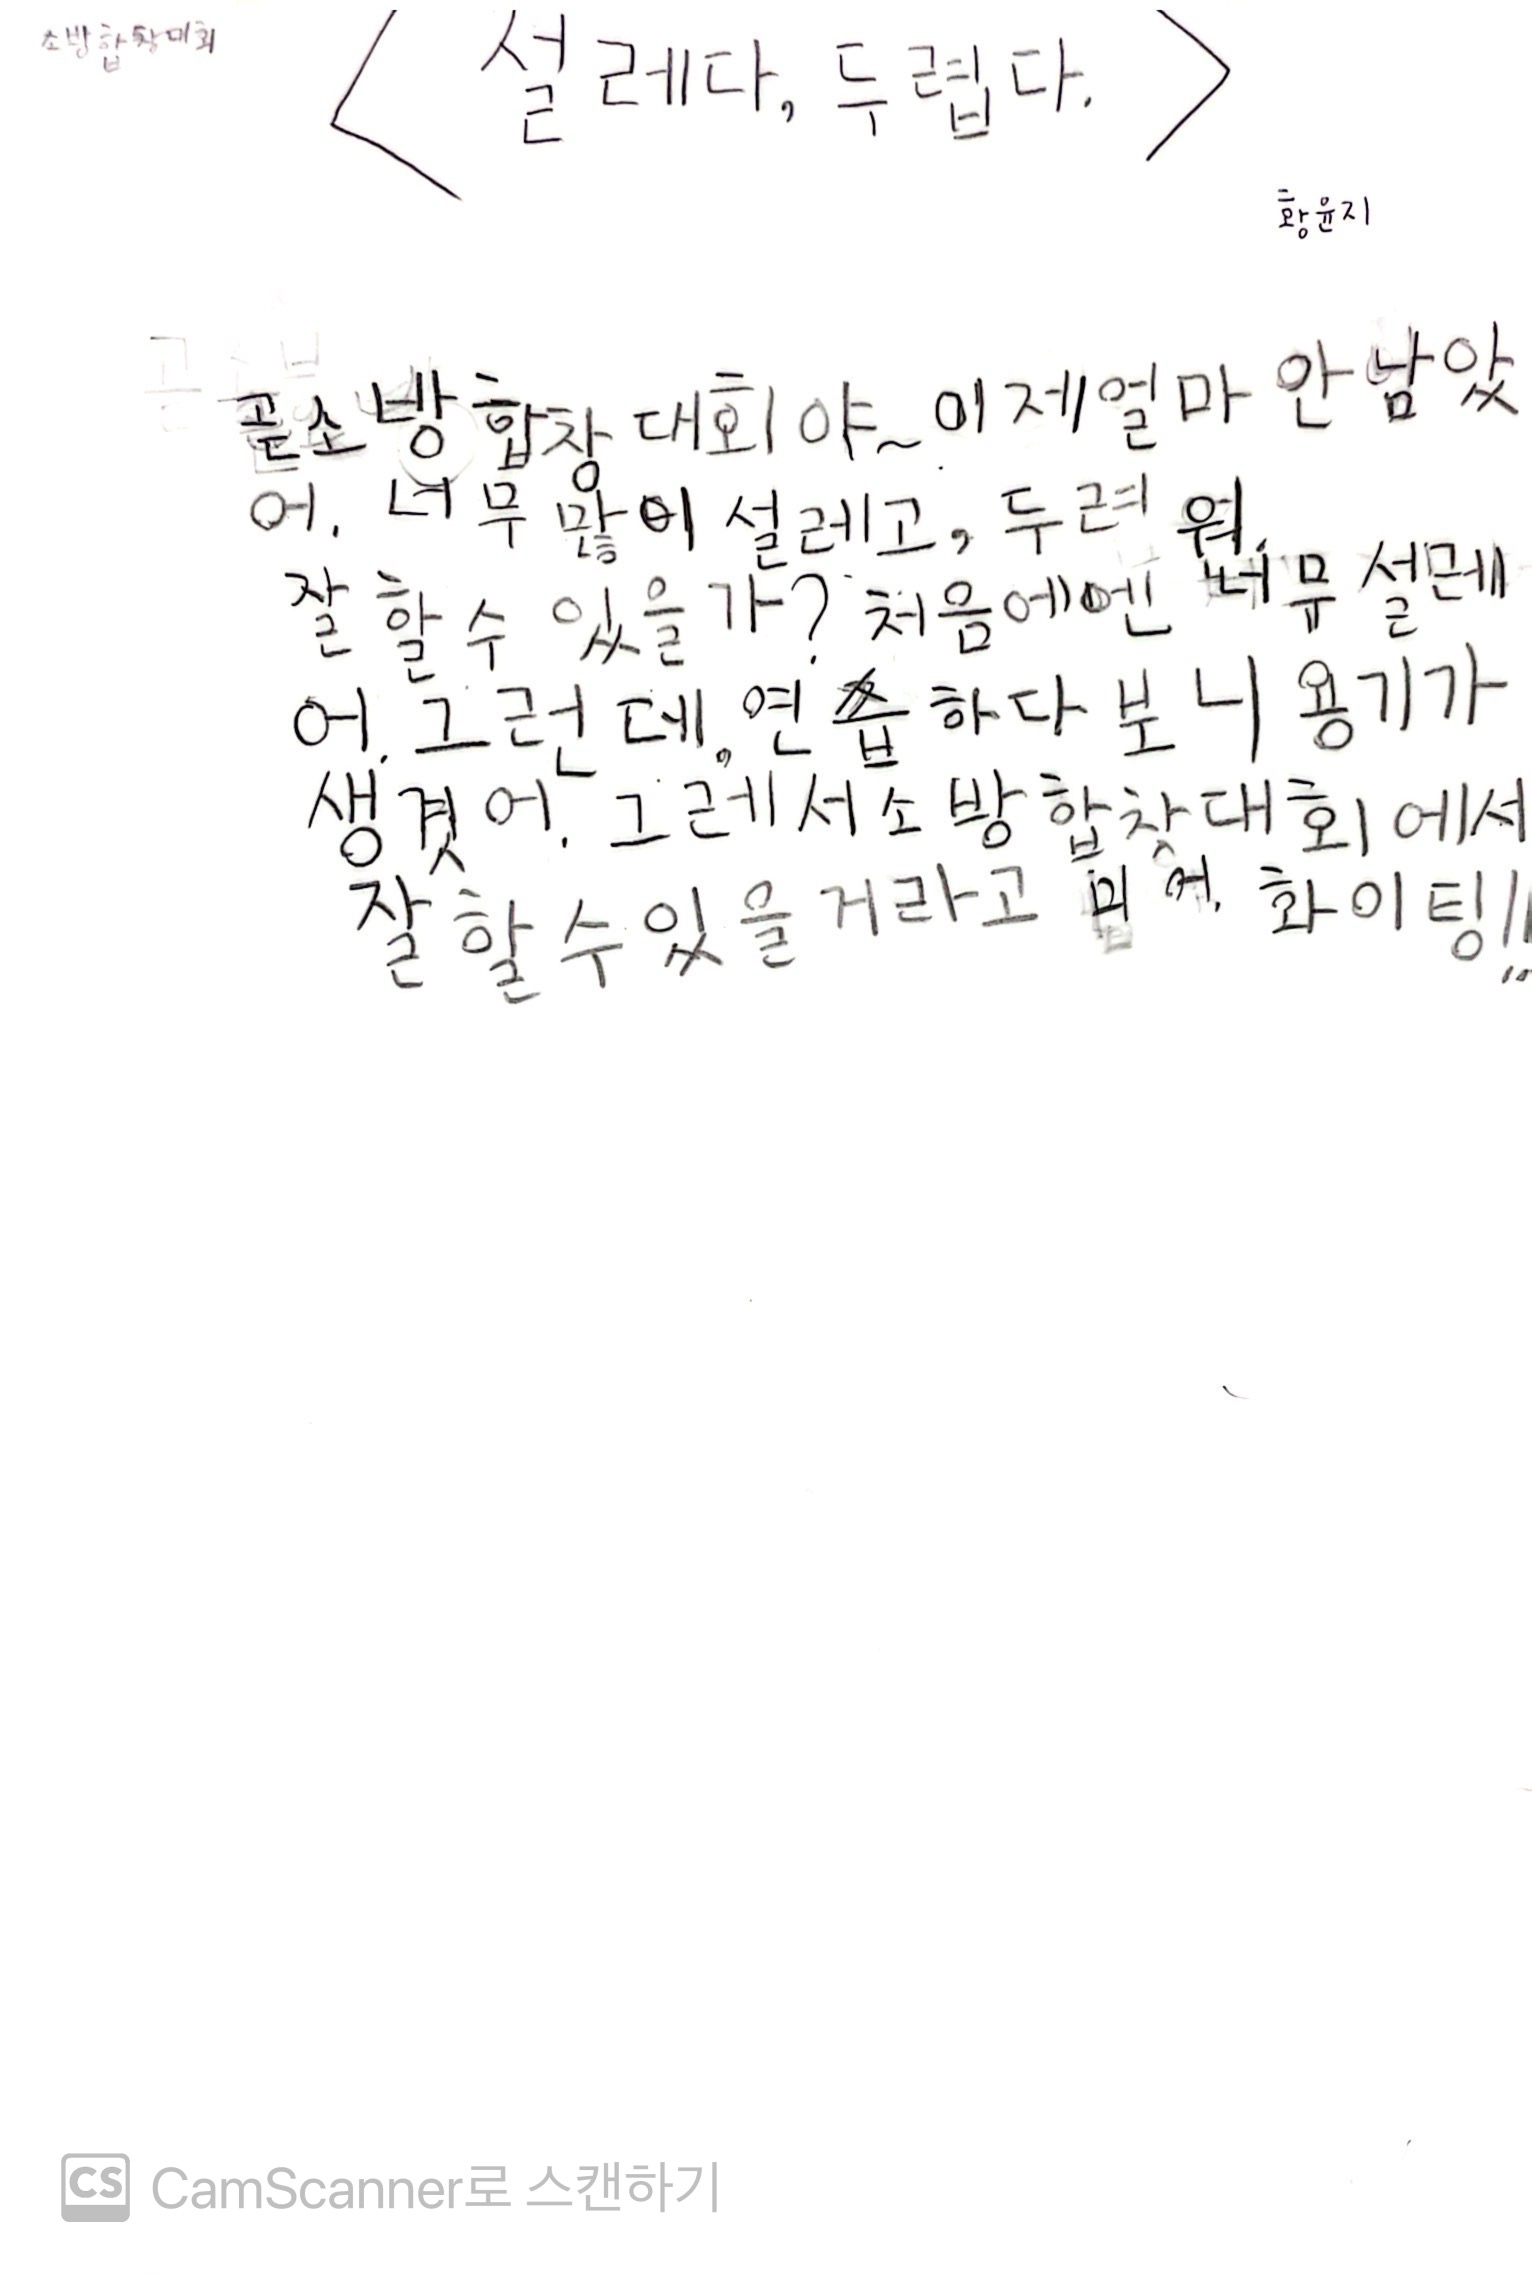 소방합창대회
<설레다, 두렵다.>
황윤지
곧 소방 합창 대회야~ 이제 얼마 안 남았
어. 너무 많이 설레고, 두려워.
잘 할 수 있을가? 처음에엔 너무 설레
어. 그런데, 연습하다 보니 용기가
생겼어. 그레서 소방 합찻대회에서
잘 할 수 있을거라고 미어. 화이팅!!
CS CamScanner로 스캔하기